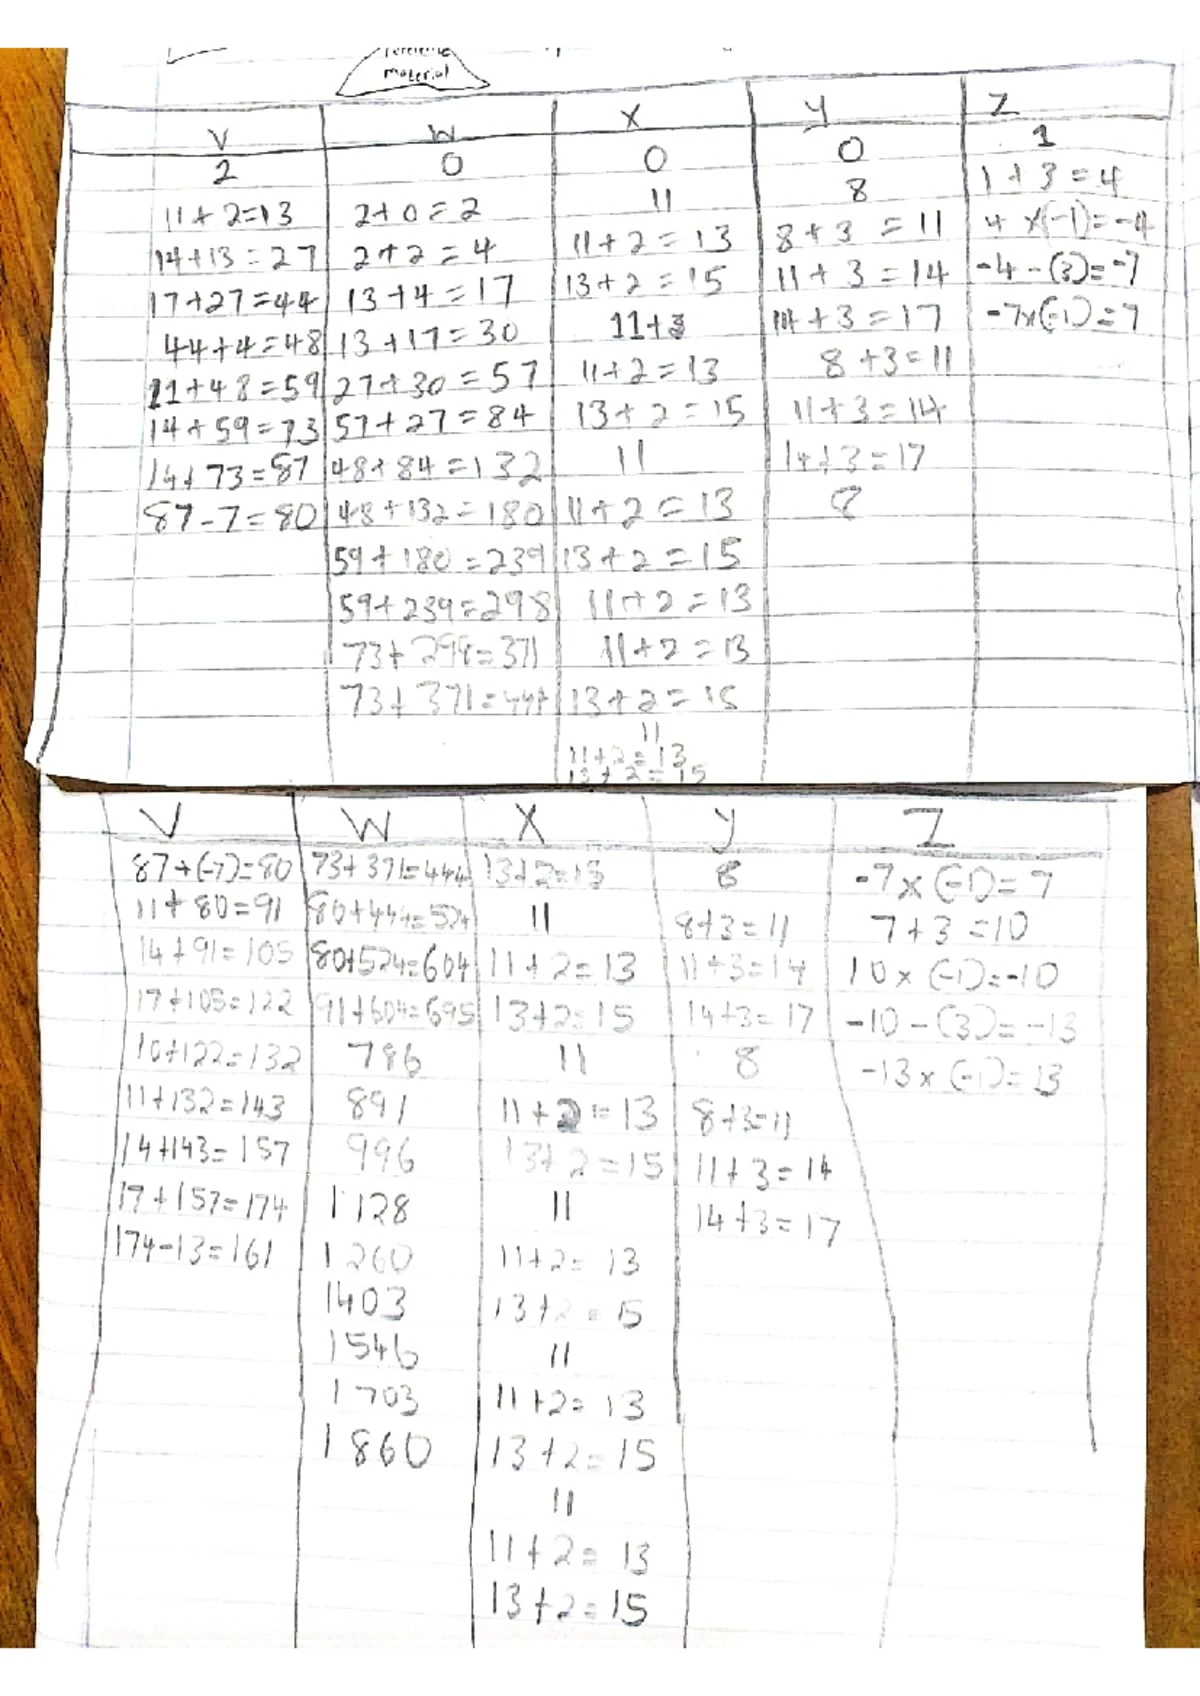 material
V W X Y Z
2 0 0 0 1
11+2=13 2+0=2 11 8 1+3=4
14+13=27 2+2=4 11+2=13 8+3=11 4x(-1)=-4
17+27=44 13+4=17 13+2=15 11+3=14 -4-(3)=-7
44+4=48 13+17=30 11+3 14+3=17 -7x(-1)=7
11+48=59 27+30=57 11+2=13 8+3=11
14+59=73 57+27=84 13+2=15 11+3=14
14+73=87 48+84=132 11 14+3=17
87-7=80 48+132=180 11+2=13 8
59+180=239 13+2=15
59+239=298 11+2=13
73+298=371 11+2=13
73+371=444 13+2=15
11
11+2=13
13+2=15
V W X Y Z
87+(-7)=80 73+371=444 13+2=15 8 -7x(-1)=7
11+80=91 80+444=524 11 8+3=11 7+3=10
14+91=105 80+524=604 11+2=13 11+3=14 10x(-1)=-10
17+105=122 91+604=695 13+2=15 14+3=17 -10-(3)=-13
10+122=132 786 11 8 -13x(-1)=13
11+132=143 891 11+2=13 8+3=11
14+143=157 996 13+2=15 11+3=14
17+157=174 1128 11 14+3=17
174-13=161 1260 11+2=13
1403 13+2=15
1546 11
1703 11+2=13
1860 13+2=15
11
11+2=13
13+2=15